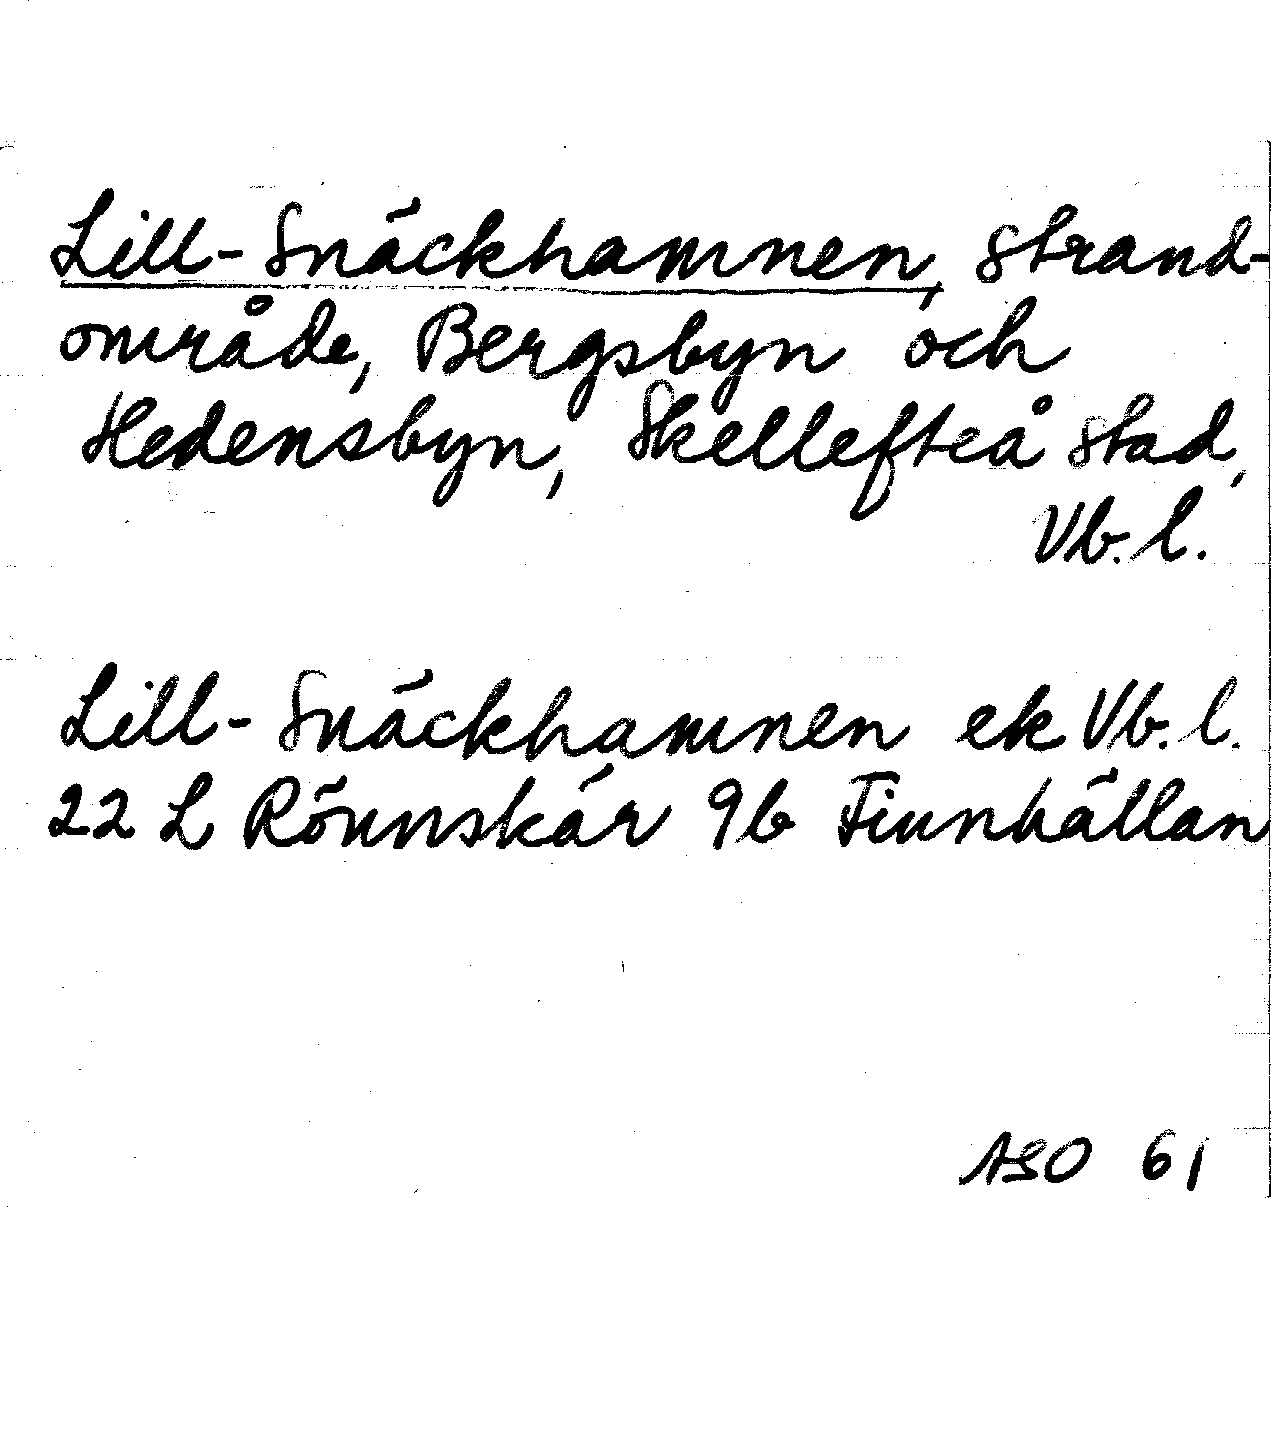 Lill-Snäckhamnen, strand-
område, Bergsbyn och
Hedensbyn, Skellefteå stad,
Vb. l.
Lill-Snäckhamnen ek Vb. l.
22 L Rönnskär 9b Finnhällan
ASO 61